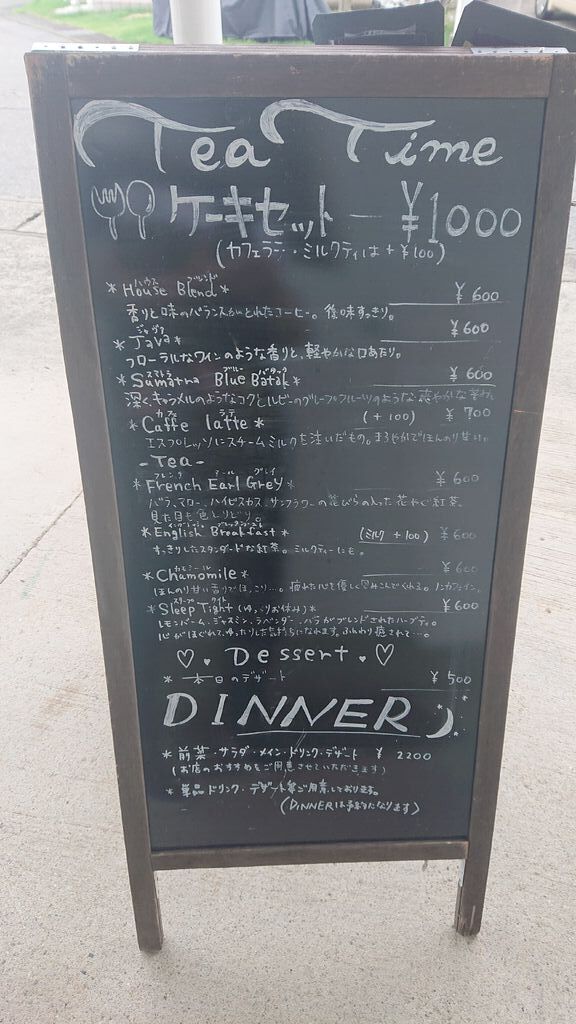 Tea Time
ケーキセット — ¥1000
(カフェラテ・ミルクティは+¥100)
ハウス ブレンド
* House Blend * ¥600
香りと味のバランスがとれたコーヒー。後味すっきり。
ジャヴァ
* Java * ¥600
フローラルなワインのような香りと、軽やかな口あたり。
スマトラ ブルー バタック
* Sumatra Blue Batak * ¥600
深く、キャラメルのようなコクとルビーのグレープフルーツのような
カフェ ラテ
* Caffe latte * (+100) ¥700
エスプレッソにスチームミルクを注いだもの。まろやかでほんのり甘い。
- Tea -
フレンチ アール グレイ
* French Earl Grey * ¥600
バラ、マロー、ハイビスカス、サンフラワーの花びらの入った花やぐ紅茶。
見た目も色とりどり。
イングリッシュ ブレックファースト
* English Breakfast * (ミルク +100) ¥600
すっきりしたスタンダードな紅茶。ミルクティーにも。
カモミール
* Chamomile * ¥600
ほんのり甘い香りでほっこり…。疲れた心を優しく包みこんでくれる。ノンカフェイン。
スリープ タイト
* Sleep Tight (ゆっくりお休み) * ¥600
レモンバーム、ジャスミン、ラベンダー、バラがブレンドされたハーブティ。
心がほぐれて、ゆったりした気持ちになれます。ふんわり癒されて…。
♡. Dessert .♡
* 本日のデザート ¥500
DINNER
* 前菜・サラダ・メイン・ドリンク・デザート ¥2200
(お店のおすすめをご用意させていただきます)
* 単品ドリンク・デザート等ご用意しております。
(DINNERは予約になります)